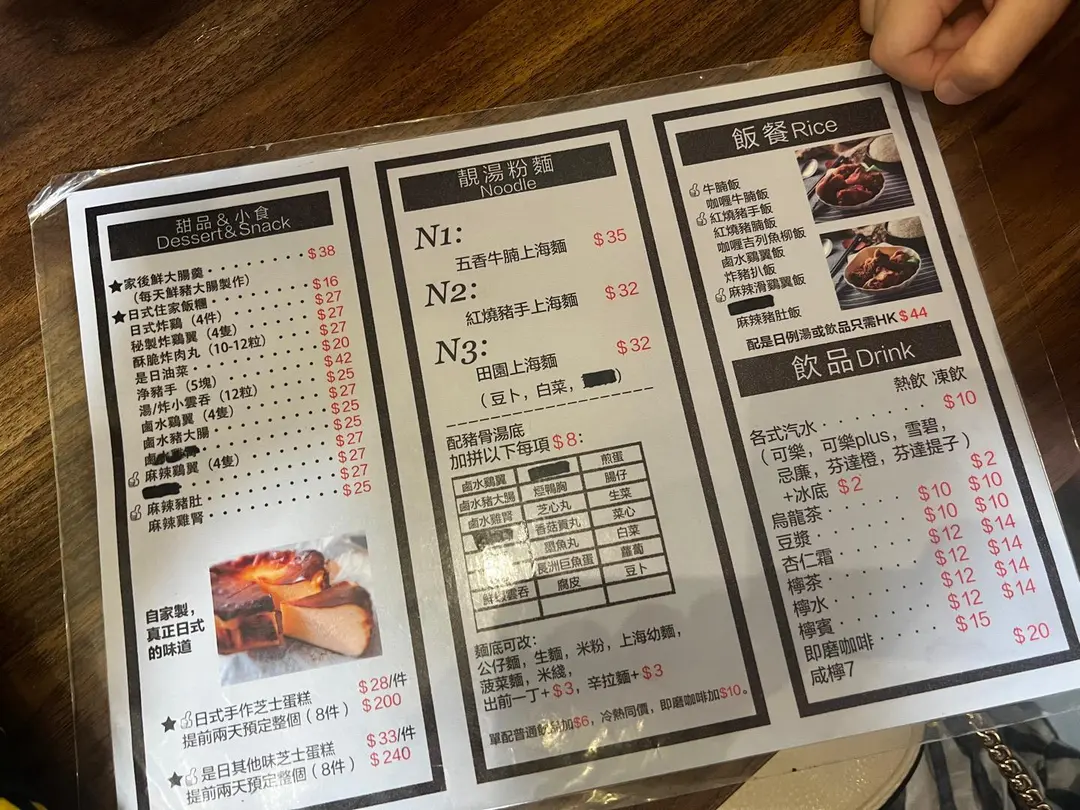 甜品&小食
Dessert&Snack
家後鮮大腸羹 $38
（每天鮮豬大腸製作）
日式住家飯糰 $16
日式炸鷄（4件） $27
秘製炸鷄翼（4隻） $27
酥脆炸肉丸（10-12粒） $27
是日油菜 $20
淨豬手（5塊） $42
湯/炸小雲吞（12粒） $25
鹵水鷄翼（4隻） $27
鹵水豬大腸 $25
鹵水 $25
麻辣鷄翼（4隻） $27
$27
麻辣豬肚 $27
麻辣雞腎 $25
自家製，
真正日式
的味道
日式手作芝士蛋糕 $28/件
提前兩天預定整個（8件） $200
是日其他味芝士蛋糕 $33/件
提前兩天預定整個（8件） $240
靚湯粉麵
Noodle
N1:
五香牛腩上海麵 $35
N2:
紅燒豬手上海麵 $32
N3:
田園上海麵 $32
（豆卜，白菜，）
配豬骨湯底
加拼以下每項$8：
鹵水鷄翼 煎蛋
鹵水豬大腸 煙鴨胸 腸仔
鹵水雞腎 芝心丸 生菜
香菇貢丸 菜心
墨魚丸 白菜
長洲巨魚蛋 蘿蔔
鮮蝦雲吞 腐皮 豆卜
麵底可改：
公仔麵，生麵，米粉，上海幼麵，
菠菜麵，米綫，
出前一丁+$3，辛拉麵+$3
單配普通飲品加$6，冷熱同價，即磨咖啡加$10。
飯餐Rice
牛腩飯
咖喱牛腩飯
紅燒豬手飯
紅燒豬腩飯
咖喱吉列魚柳飯
鹵水鷄翼飯
炸豬扒飯
麻辣滑鷄翼飯
麻辣豬肚飯
配是日例湯或飲品只需HK$44
飲品Drink
熱飲 凍飲
各式汽水 $10
（可樂，可樂plus，雪碧，
忌廉，芬達橙，芬達提子）
+冰底 $2 $2
烏龍茶 $10 $10
豆漿 $10 $10
杏仁霜 $12 $14
檸茶 $12 $14
檸水 $12 $14
檸賓 $12 $14
即磨咖啡 $15
咸檸7 $20